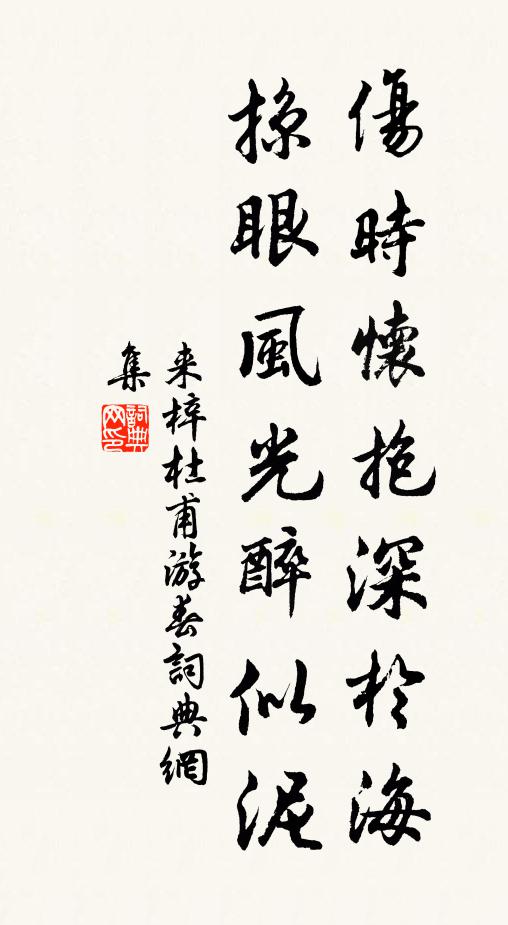 傷時懷抱深於海
掠眼風光醉似泥
来梓杜甫游春詞典網
集
詞典网印